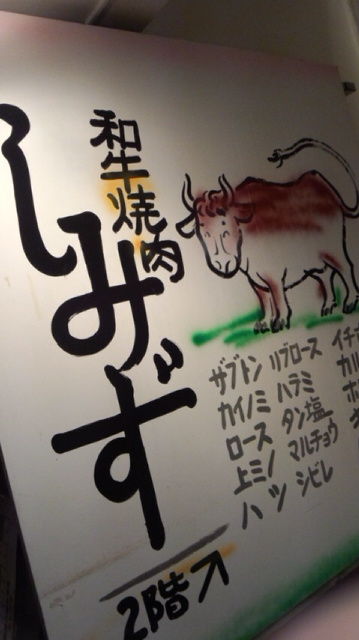 和牛焼肉
しみず
イチ
カル
リブロース
ハラミ
タン塩
マルチョウ
シビレ
ザブトン
カイノミ
ロース
上ミノ
ハツ
2階↗